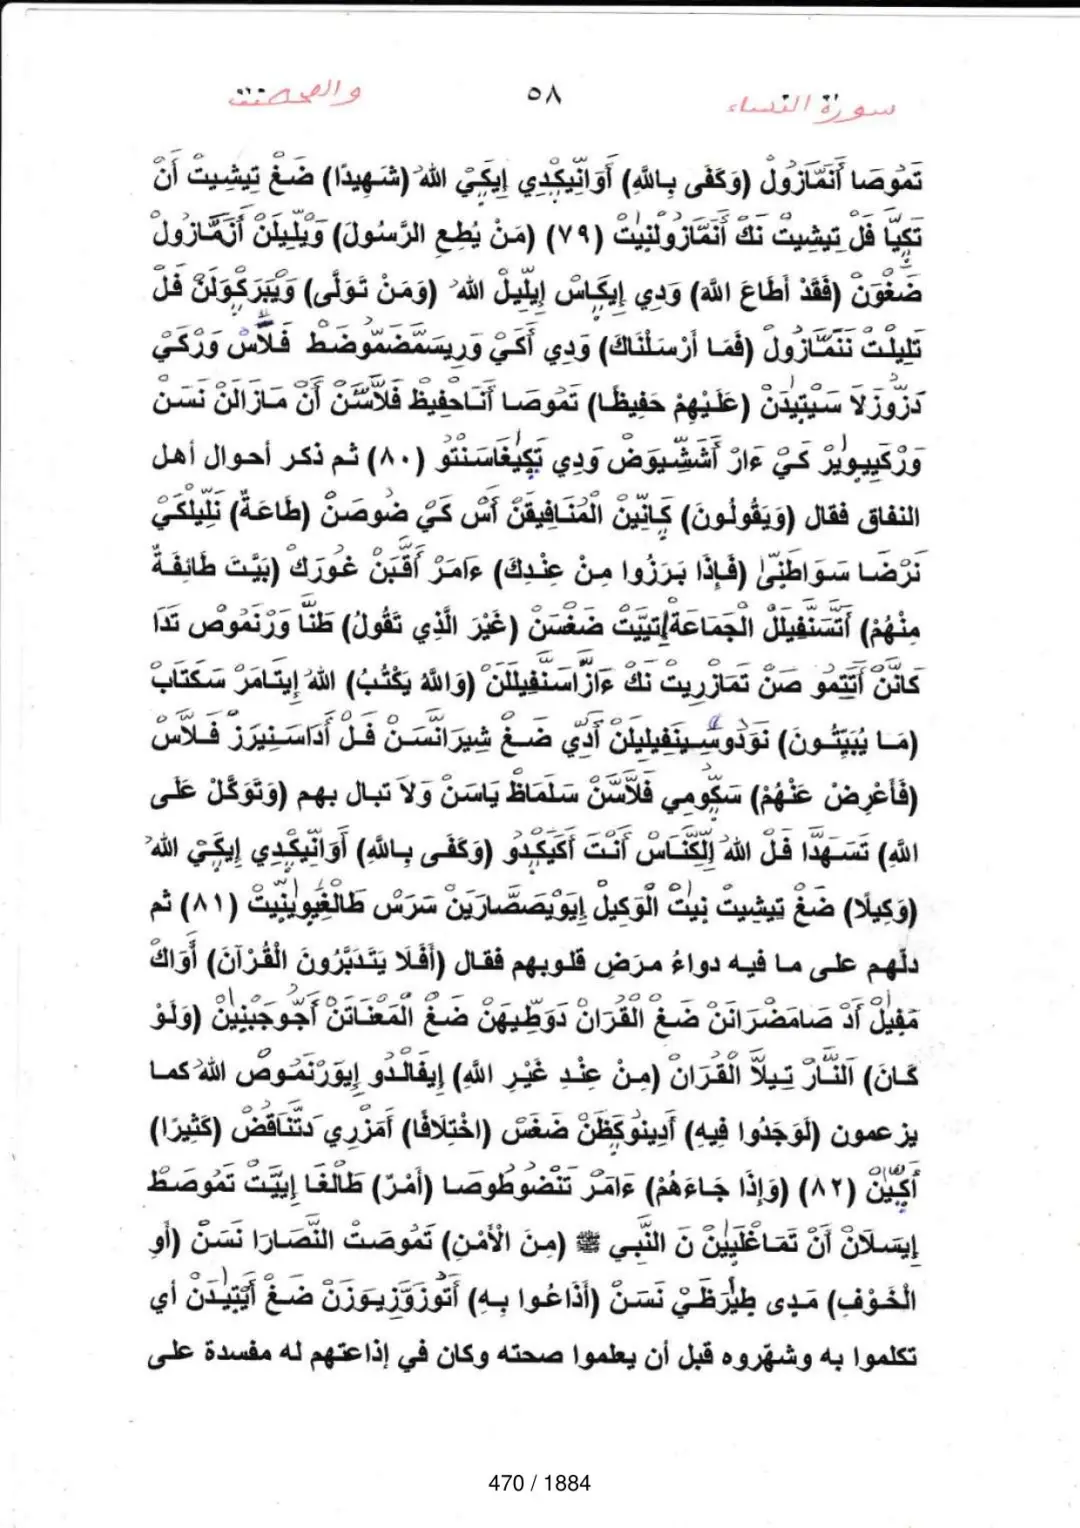 سورة النساء ٥٨ والمحصنت
تَمُوصَا أَنَمَّازُولْ (وَكَفَى بِاللَّهِ) أَوَانِّيكْدِي إِيكَيْ اللهُ (شَهِيدًا) ضَغْ تِيشِيتْ أَنْ
تَكِيَّا فَلْ تِيشِيتْ نَكْ أَنَمَّازُولْنِيتْ (٧٩) (مَنْ يُطِعِ الرَّسُولَ) وَيْلِيلَنْ أَنَمَّازُولْ
ضَغْوَنْ (فَقَدْ أَطَاعَ اللَّهَ) وَدِي إِيكَاسْ إِيلِّيلْ اللهُ (وَمَنْ تَوَلَّى) وَيْبَرَكْوَلَنْ فَلْ
تَلِيلْتْ نَنَمَّازُولْ (فَمَا أَرْسَلْنَاكَ) وَدِي أَكَيْ وَرِيسَمَّضَمُّوضَطْ فَلَّاسْ وَرْكَيْ
دَزُّوزَلَا سَيْتِيدَنْ (عَلَيْهِمْ حَفِيظًا) تَمُوصَا أَنَاحْفِيظْ فَلَّاسَّنْ أَنْ مَازَالَنْ نَسَنْ
وَرْكَيِيوِيرْ كَيْ ءَارْ أَشَشِّيوَضْ وَدِي تَكِيغَاسَنْتُو (٨٠) ثم ذكر أحوال أهل
النفاق فقال (وَيَقُولُونَ) كَانِّينْ الْمُنَافِيقَنْ أَسْ كَيْ ضُوصَنْ (طَاعَةٌ) نَلِيلْكَيْ
نَرْضَا سَوَاطَنِّى (فَإِذَا بَرَزُوا مِنْ عِنْدِكَ) ءَامَرْ أَقَّبَنْ غُورَكْ (بَيَّتَ طَائِفَةٌ
مِنْهُمْ) أَتَّسَنْفِيلَلْ الْجَمَاعَةْ إِتيِيَّتْ ضَغْسَنْ (غَيْرَ الَّذِي تَقُولُ) طَنَّا وَرْنَمُوصْ تَدَا
كَانَّنْ أَتَتِمُو صَنْ تَمَازِرِيتْ نَكْ ءَازَّاسَنْفِيلَلَنْ (وَاللَّهُ يَكْتُبُ) اللهُ إِيتَامَرْ سَكْتَابْ
(مَا يُبَيِّتُونَ) نَوَدُوسِينَفِيلِيلَنْ أَدِّي ضَغْ شِيرَانَّسَنْ فَلْ أَدَاسَنِيرَزْ فَلَّاسْ
(فَأَعْرِضْ عَنْهُمْ) سَكُّومِي فَلَّاسَّنْ سَلَمَاظْ يَاسَنْ وَلاَ تبال بهم (وَتَوَكَّلْ عَلَى
اللَّهِ) تَسَهَدَّا فَلْ اللهُ إِلَكَّنَاسْ أَنْتَ أَكَيَكْدُو (وَكَفَى بِاللَّهِ) أَوَانِّيكْدِي إِيكَيْ اللهُ
(وَكِيلًا) ضَغْ تِيشِيتْ نِيتْ الْوَكِيلْ إِيَوْيصَصَّارَيَنْ سَرَسْ طَالْغِيوِينِّيتْ (٨١) ثم
دلّهم على ما فيه دواءُ مرَضِ قلوبهم فقال (أَفَلَا يَتَدَبَّرُونَ الْقُرْآنَ) أَوَاكْ
مَفِيلْ أَدْ صَامَضْرَانَنْ ضَغْ الْقُرَانْ دَوَطِّيهَنْ ضَغْ الْمَعْنَاتَنْ أَجُّوجَبْنِينْ (وَلَوْ
كَانَ) اَلَنَّارْ تِيلاَّ الْقُرَانْ (مِنْ عِنْدِ غَيْرِ اللَّهِ) إِيفَالْدُو إِيوَرْنَمُوصْ اللهُ كما
يزعمون (لَوَجَدُوا فِيهِ) أَدِينُوكَظَنْ ضَغَسْ (اخْتِلَافًا) أَمَزْرِي دَتَّنَاقُضْ (كَثِيرًا)
أَكِيِّنْ (٨٢) (وَإِذَا جَاءَهُمْ) ءَامَرْ تَنْضُوطُوصَا (أَمْرٌ) طَالْغَا إِيِيَّتْ تَمُوصَطْ
إِيسَلَانْ أَنْ تَمَاغْلَيِينْ نَ النَّبِي ﷺ (مِنَ الْأَمْنِ) تَمُوصَتْ النَّصَارَا نَسَنْ (أَوِ
الْخَوْفِ) مَدِى طِيرَظَيْ نَسَنْ (أَذَاعُوا بِهِ) أَتُّوزَوَّزِيوَزَنْ ضَغْ أَيْتِيدَنْ أي
تكلموا به وشهّروه قبل أن يعلموا صحته وكان في إذاعتهم له مفسدة على
470 / 1884